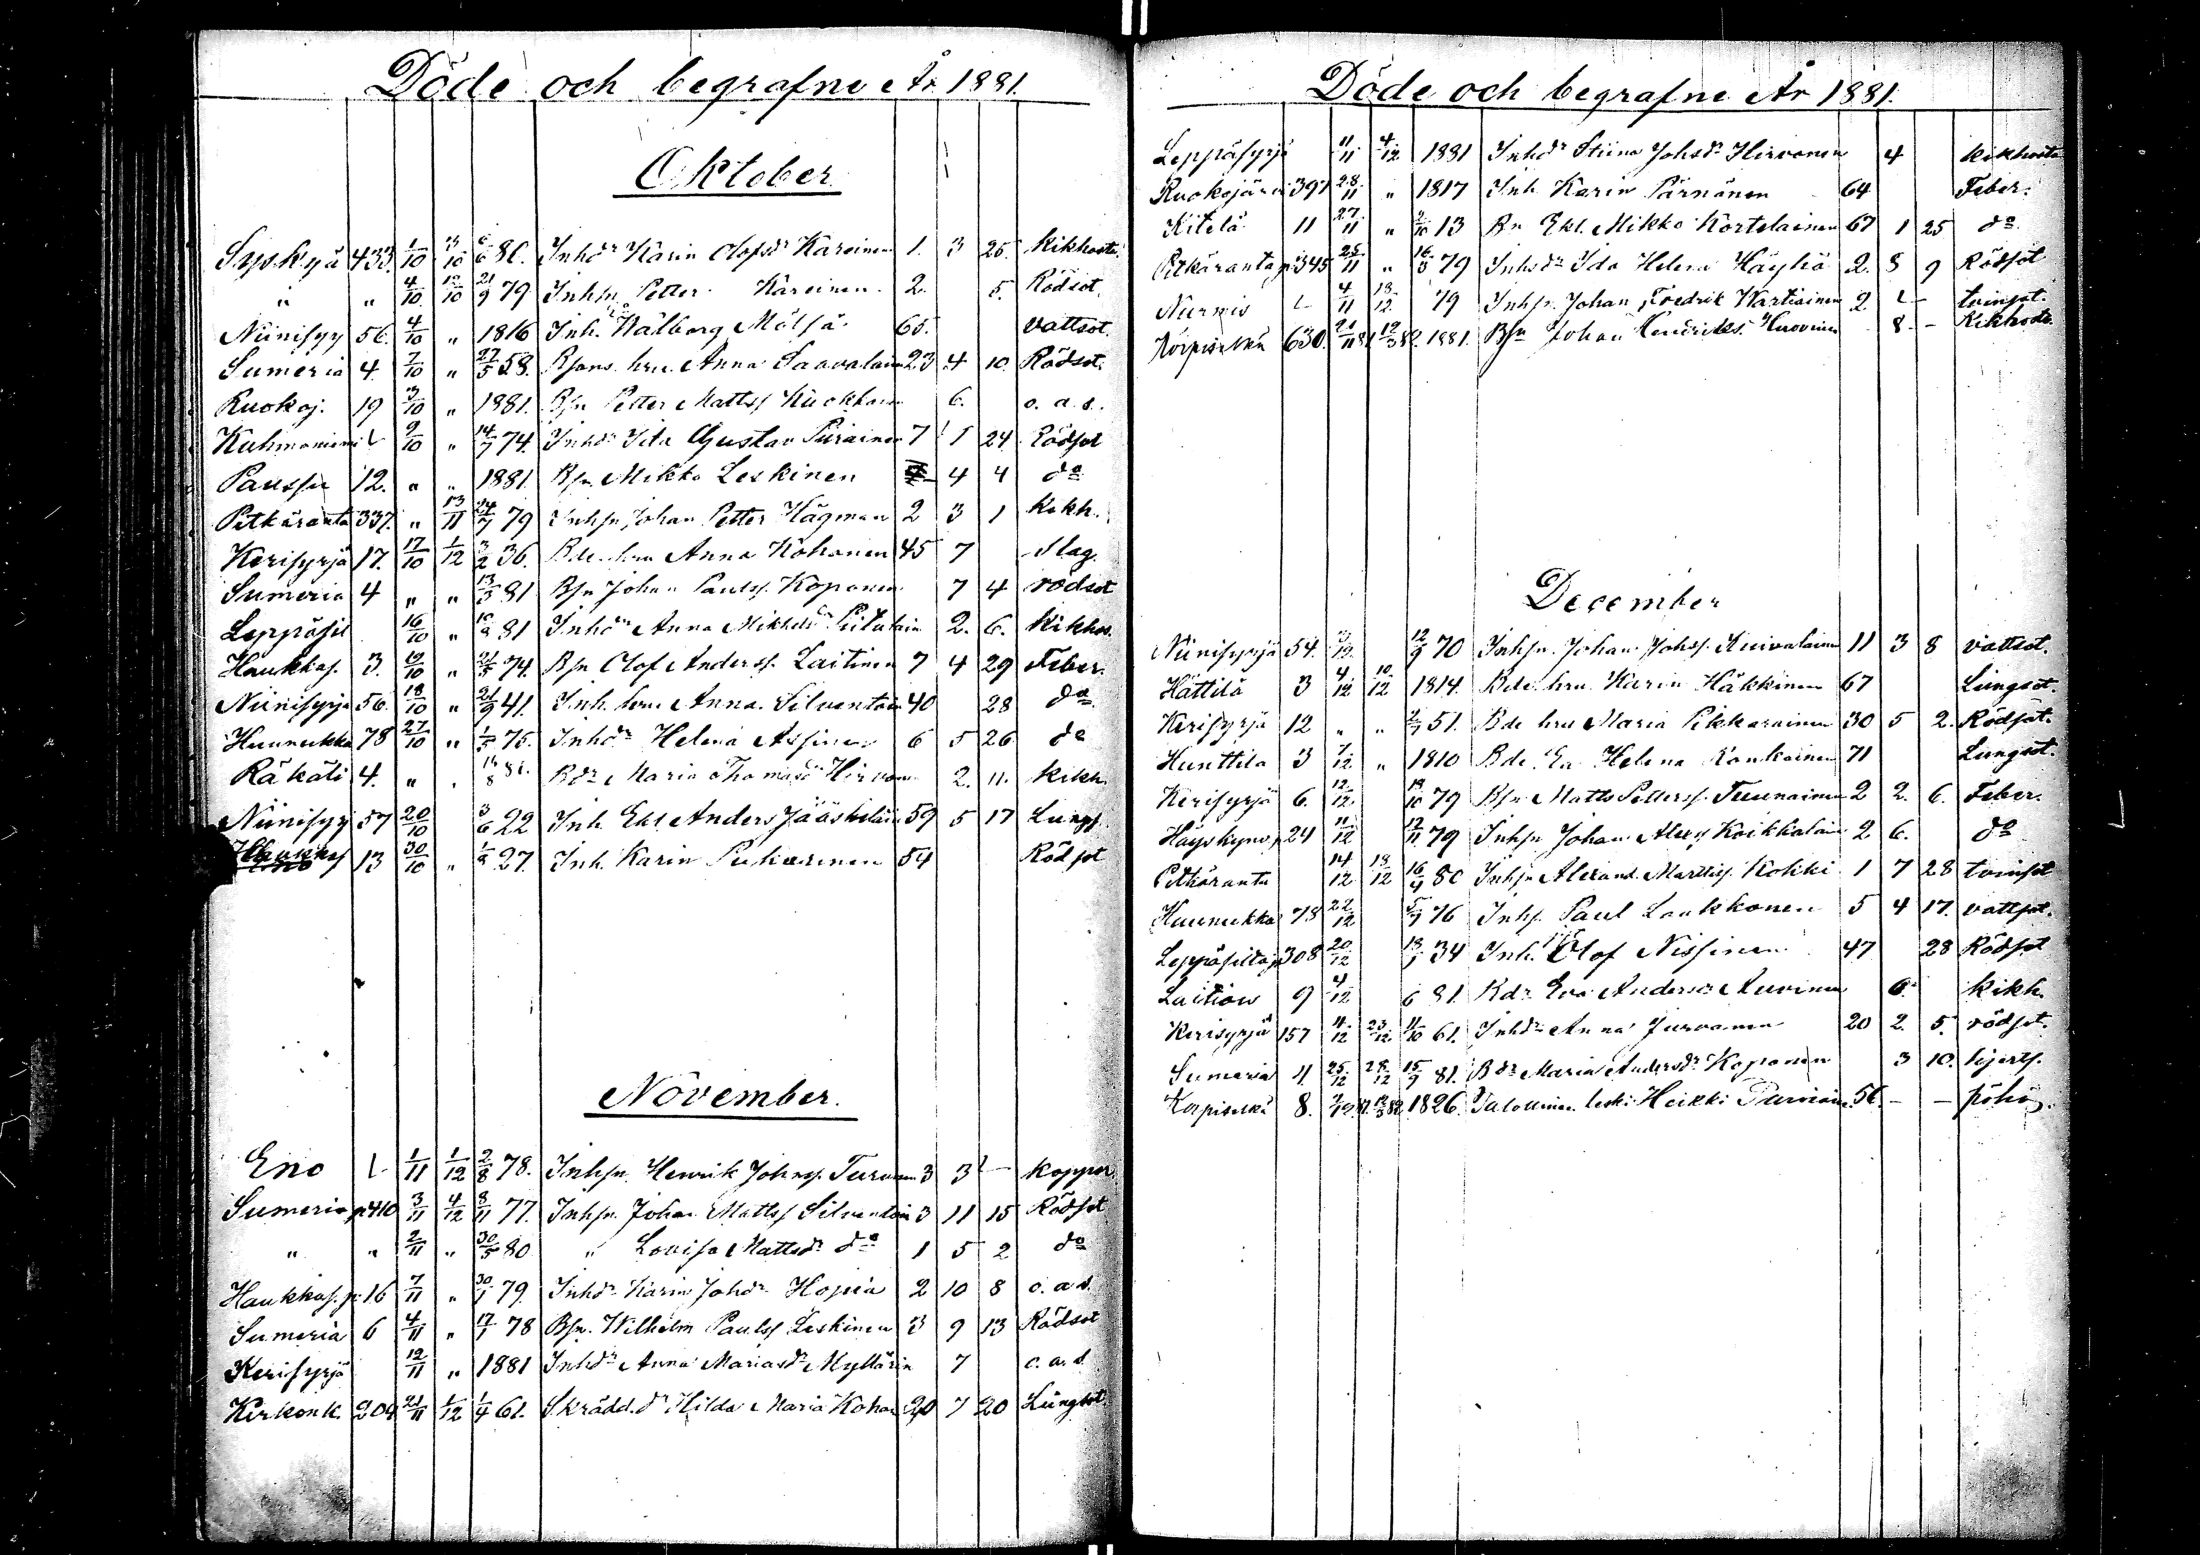 Döde och begrafne År 1881.
Oktober
Syskyä 433. 1/10 3/10 6/6 80. Inhdr Karin Olofsdr Kareinen 1. 3 25. Kikhosta
" " 4/10 15/10 21/9 79 Inhsn Petter Kareinen 2. 5. Rödsot.
Niinisyy 56. 4/10 " 1816 Inh. Walborg Mölsä 65. vattsot.
Sumeria 4. 7/10 " 27/5 58. Bsons hru Anna Saavalain 23 4 10. Rödsot.
Ruokoj. 19 3/10 " 1881. Bsn Petter Mattss 6. o. a. s.
Kuhmoniemi 9/10 " 14/7 74. Inhdr Ida Gustava Piirainen 7 1 24 Rödsot
Paussu 12. " " 1881. Bsn Mikko Leskinen 4 4 do
Pitkäranta 337. " 13/11 24/7 79 Inhsn Johan Petter Hägman 2 3 1 Kikh.
Kerisyrjä 17. 17/10 1/12 3/2 36. Bde. hru Anna Kohonen 45 7 slag.
Sumeria 4 " " 13/3 81 Bsn Johan Paulss. Koponen 7 4 rödsot
Leppäsil 16/10 " 10/8 81 Inhdr Anna Mikkelsdr 2. 6. Kikhos.
Haukkas. 3. 19/10 " 21/5 74. Bsn Olof Anderss. Laitinen 7 4 29 Feber.
Niinisyrjä 56. 18/10 " 21/9 41. Inh. hru Anna Silventoin 40 28 do
Huunukka 78 27/10 " 1/5 75. Inhdr Helena Assinen 6 5 26 do
Räkäti 4. " . 16/8 81. Bdr Maria Thomasdr Hirvonen 2. 11. Kikh.
Niinisyy 57 20/10 3/6 22 Inh. Ekl Anders Jääskeläin 59 5 17 Lungs.
Haukkas 13 30/10 " 1/8 27. Inh. Karin Puharinen 54 Rödsot
November.
Eno 1/11 1/12 2/8 78. Inhsn Henrik Johnss. Turunen 3 3 — Koppor.
Sumeria p410 3/11 4/12 8/11 77. Inhsn Johan Mattss Silventoin 3 11 15 Rödsot
" " 2/11 " 30/5 80 " Lovisa Mattsdr do 1 5 2 do
Haukkas. p. 16 7/11 " 30/1 79. Inhdr Karin Johdr Hopia 2 10 8 o. a. s.
Sumeria 6 4/11 " 17/1 78 Bsn. Wilhelm Paulss Leskinen 3 9 13 Rödsot
Kerisyrjä 12/11 " 1881 Inhdr Anna Mariasdr Myllärin 7 o. a. s.
Kirkonk. 209 21/11 1/12 1/4 61. Skrädd.dr Hilda Maria Kohon 20 7 20 Lungsot.
Döde och begrafne År 1881.
Leppäsyrjä 11/11 4/12 1881 Inhdr Stina Johsdr Hirvonen 4 kikhosta
Ruokojärvi 397 28/11 " 1817 Inh Karin Pärnänen 64 Feber.
Kitelä 11 27/11 " 2/10 13 Bn Ekl. Mikko Kortelainen 67 1 25 do
Pitkäranta p345 25/11 " 16/3 79 Inhdr Ida Helena Häyhä 2. 8 9 Rödsot
Nurmis 4/11 18/12 79 Inhsn Johan Fredrik Wartiainen 2. tvinsot.
Korpiselkä 630. 21/11 81. 12/3 82. 1881. Bsn Johan Hendrikss. 8. — Kikhosta
December
Niinisyrjä 54. 3/12 12/9 70 Inhsn. Johan Johss. 11 3 8 vattsot.
Hättilä 3 4/12 10/12 1814. Bde. hru Karin Häkkinen 67 Lungsot.
Kerisyrjä 12 " " 2/7 51. Bde hru Maria Pikkarainen 30 5 2. Rödsot.
Hunttila 3 7/12 " 1810 Bde. Ea Helena Ronkainen 71 Lungsot.
Kerisyrjä 6. 12/12 18/10 79 Bsn Matts Petterss. Tuunainen 2 2. 6. Feber.
24 11/12 12/11 79 Inhsn Johan Alexss Koikkalain 2 6. do
Pitkäranta 14/12 18/12 16/4 80 Inhsn Alexand. Martiss. Kokki 1 7 28 tvinsot
Huunukka 78 22/12 5/7 76 Inhs. Paul Laukkanen 5 4 17. vattsot.
Leppäsilta p308 20/12 18/1 34 Inh. Olof Nissinen 47 28 Rödsot
Laitiow 9 4/12 6 81. Bdr Eva Andersdr Auvinen 6. kikh.
Kerisyrjä 157 11/12 23/12 11/10 61. Inhdr Anna Jurvanen 20 2. 5. rödsot.
Sumeria 4. 25/12 28/12 15/9 81. Bdr Maria Andersdr Koponen 3 10. hjerts.
Korpiselkä 8. 1826. Talollinen leski Heikki Purviain 56. — — pöhö.